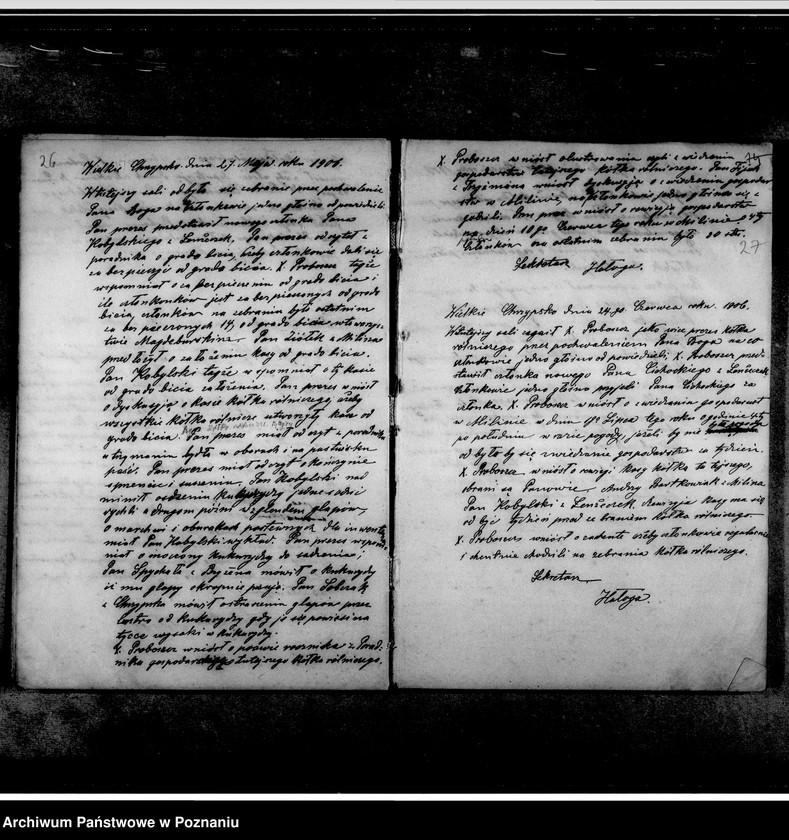 26
Wielkie Chrzypsko dnia 27. Maja roku 1906.
W tutejszej sali odbyło się zebranie przez pochwalenie
Pana Boga na co członkowie jedno głośno odpowiedzieli
Pan prezes przedstawił nowego członka Pana
Kobylskiego z Pan prezes odczytał z
poradnika o grado bicia, żeby członkowie dali się
za bezpieczyć od grado bicia. X. Proboszcz także
wspomniał o za bezpieczeniu od grado bicia i
ile członkonków jest za bezpieczonych od grado
bicia, członków na zebraniu było ostatnim
za bezpieczonych 14, od grado bicia w towarzys-
twie Magdeburskim. Pan Ziółek z Milina
przedłożył o założeniu kasy od grado bicia.
Pan Kobylski także wspomniał o tej kasie
od grado bicia założenia. Pan prezes wniósł
o dyskusją o kasie kółka rólniczego, ażeby
wszystkie kółka rólnicze utworzyły kasę od
grado bicia. Pan prezes miał odczyt z poradnika
o trzymaniu bydła w oborach i na pastwisku
paść. Pan prezes miał odczyt o koniczynie
sprzencie i suszeniu. Pan Kobylski nad
mienił sadzeniu kukurydzy jedne sadzić
rychli a drugom późni względem głapów,
o marchwi i oburakach pastewnych dla inwentarza
miał Pan Kobylski wykład. Pan prezes wspom-
niał o moczony kukurydzy do sadzenia;
Pan Spychała z mówił o kukurydzy
iż mu głapy okropnie psują. Pan
z Chrzypska mówił ostraszeniu głapów przez
lustro od kukurydzy gdy je się powiesi na
tyce wysoki w kukurydzy.
X. Proboszcz wniósł o poowie rocznika z Porad-
nika gospodarskiego tutejszego kółka rólniczego.
X. Proboszcz wniósł olustrowania czyli zwiedzenia
gospodarstw tutejszego kółka rólniczego. Pan
z wniósł dyskusją o zwiedzenia gospodar-
stw w Milinie, na członkowie jedno głośno się z
godzili. Pan prezes wniósł o rewizją gospodarstw
na dzień 10 go Czerwca tego roku w Milinie o
Członków na ostatnim zebraniu było 20 stu.
27
Sekretarz Hałoga.
Wielkie Chrzypsko dnia 24. go Czerwca roku 1906.
W tutejszej sali zagaił X. Proboszcz jako wice prezes kółka
rólniczego przez pochwaleniem Pana Boga na co
członkowie jedno głośno od powiedzieli; X. Proboszcz przed-
stawił członka nowego Pana Cichockiego z
członkowie jedno głośno przyjęli Pana Cichockiego za
członka. X. Proboszcz wniósł o zwiedzenia gospodarstw
w Milinie w dniu Lipca tego roku o godzinie 4 tej
po południu w razie pogody, jeżeli by nie
od było by się zwiedzenie gospodarstw za tydzień.
X. Proboszcz wniósł o rewizyi kasy kółka tutejszego,
obrani są Panowie, Andrzy Bartkowiak z Milina
Pan Kobylski z Rewizja kasy ma się
od być tydzień przed ze braniem kółka rólniczego
X. Proboszcz wniósł o zadanie ażeby członkowie regularnie
i chentnie chodzili na zebrania kółka rólniczego.
Sekretarz
Hałoga.
Archiwum Państwowe w Poznaniu